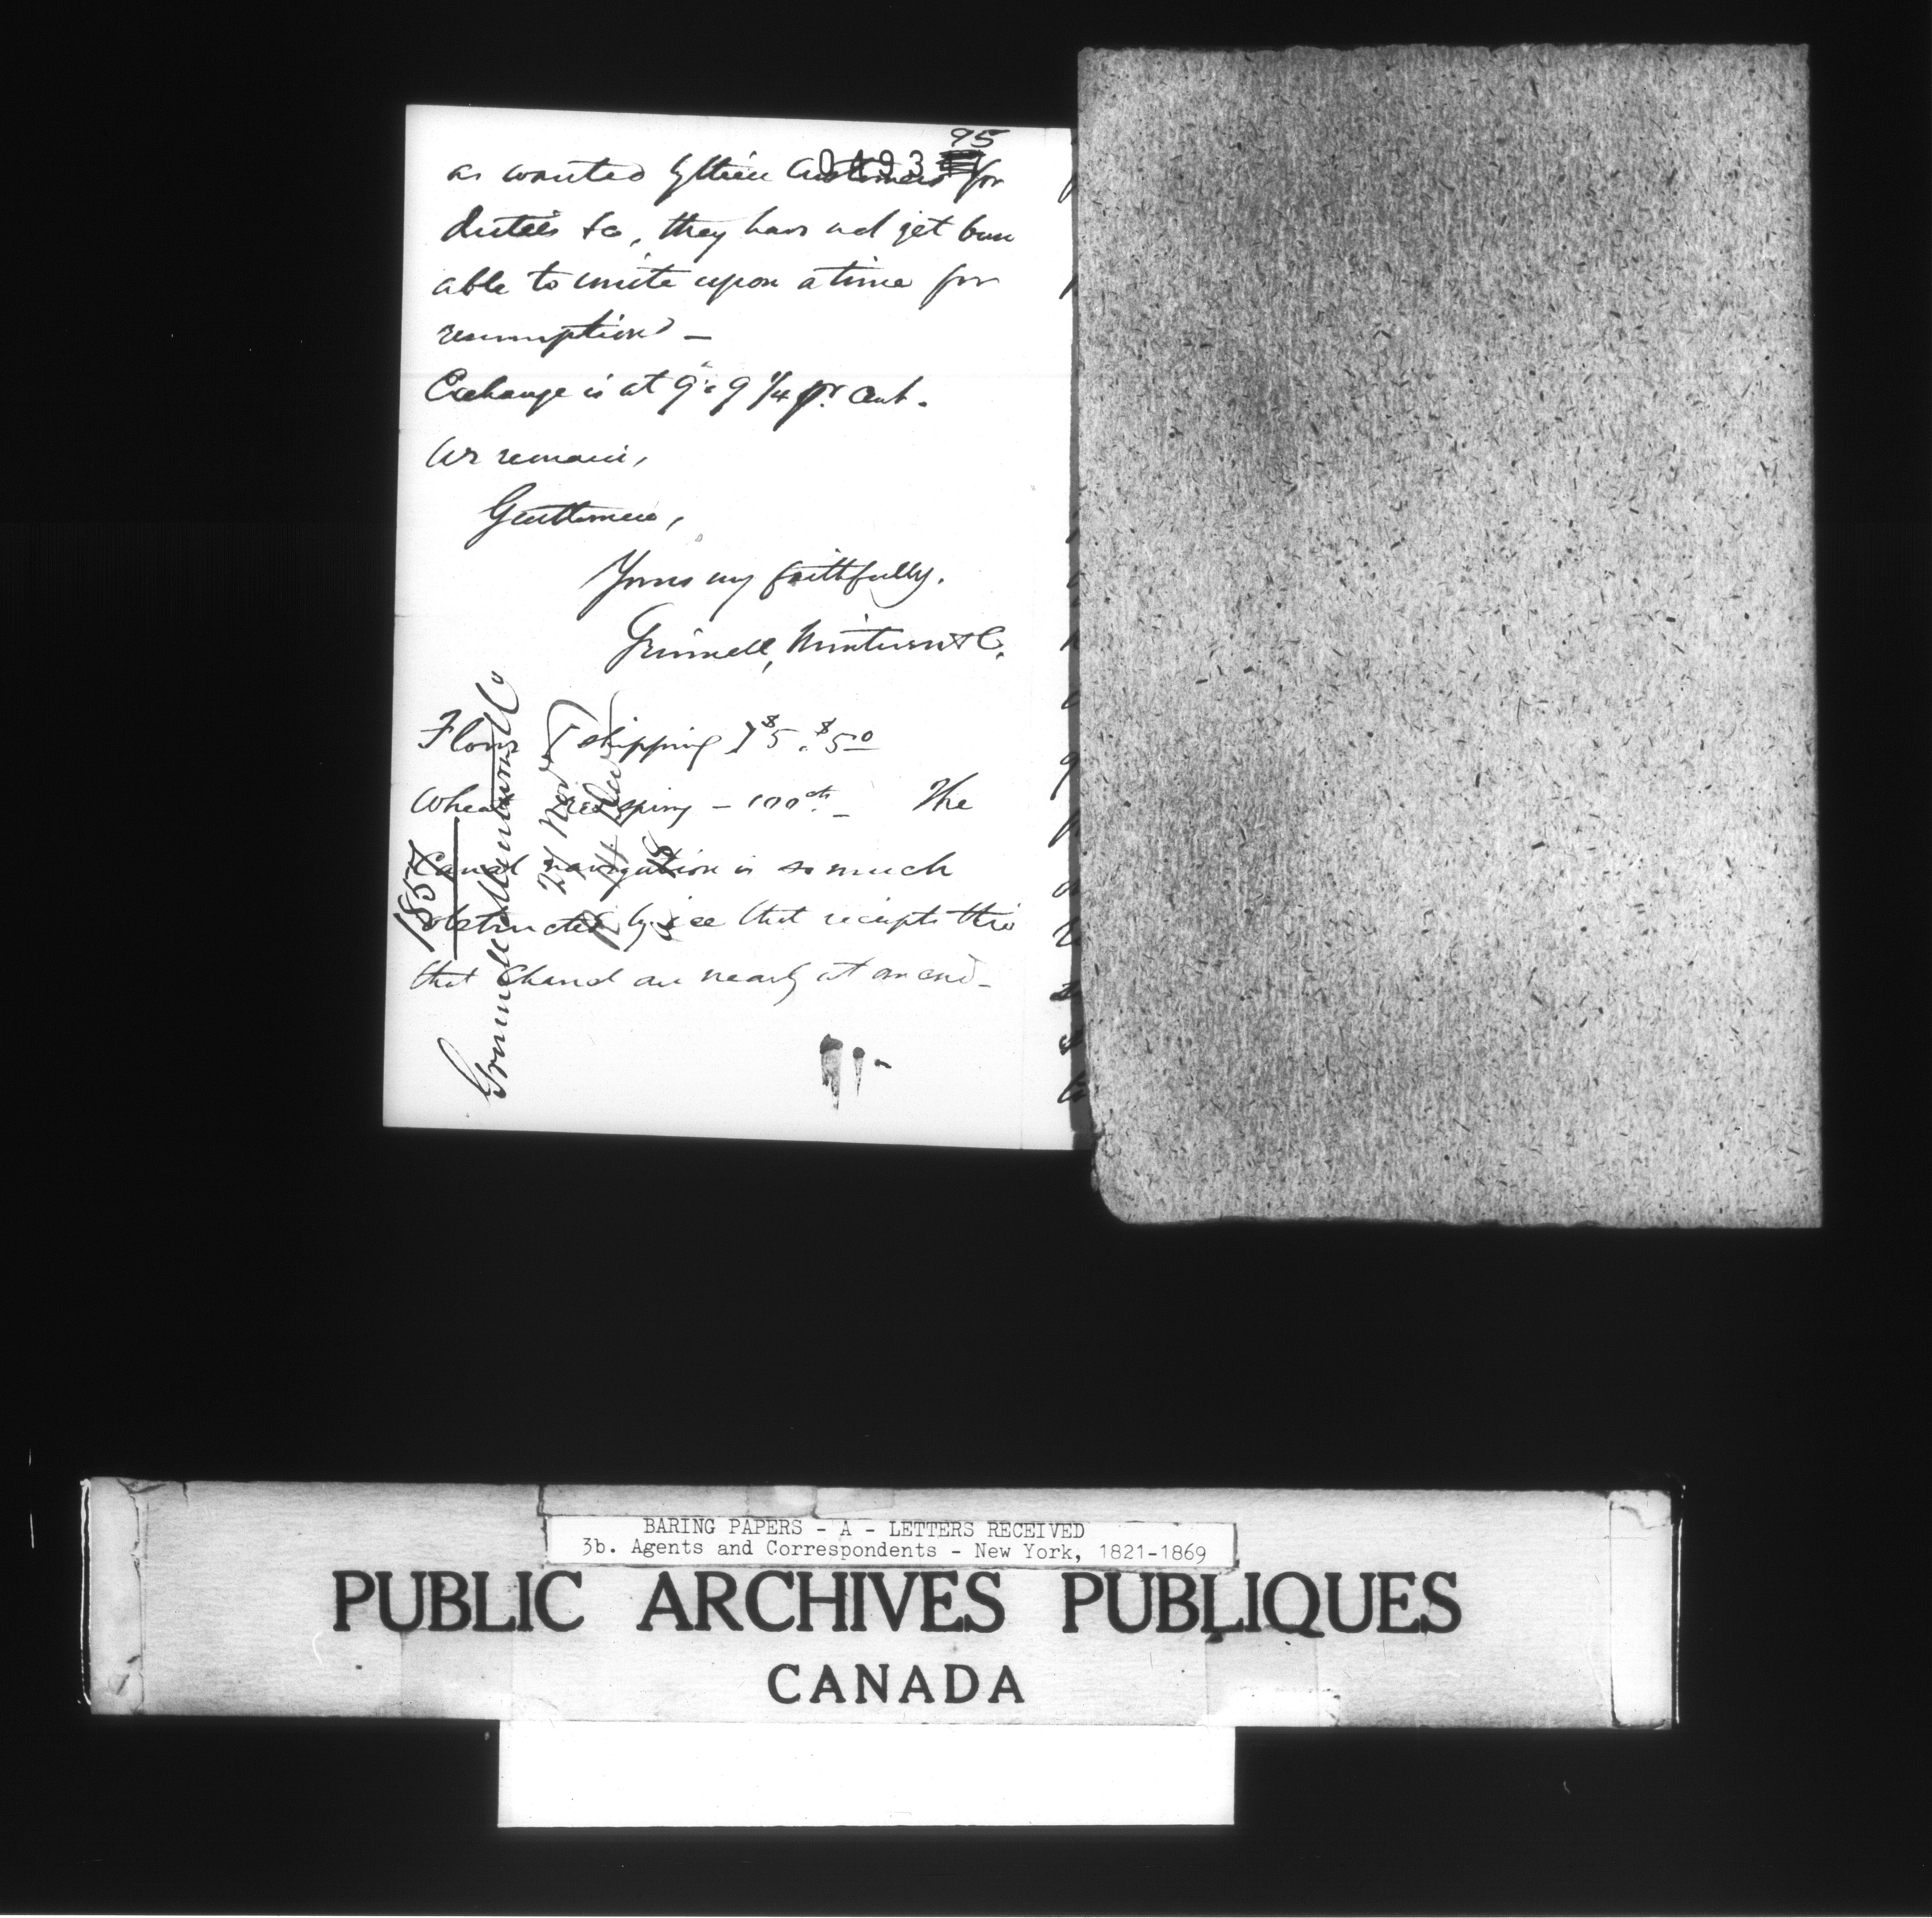 95
0493
as wanted by their customers for
duties &c, they have not yet been
able to unite upon a time for
resumption —
Exchange is at 9 a 9 1/4 pr. Cent.
We remain,
Gentlemen,
Yours very faithfully,
Grinnell, Minturn & Co.
Flour (shipping) $5. $5.00
Wheat red spring — 100 cts — The
Canal navigation is so much
obstructed by ice that receipts thro
that Channel are nearly at an end —
1857
Grinnell Minturn & Co
27 Nov
14 Dec
BARING PAPERS - A - LETTERS RECEIVED
3b. Agents and Correspondents - New York, 1821-1869
PUBLIC ARCHIVES PUBLIQUES
CANADA